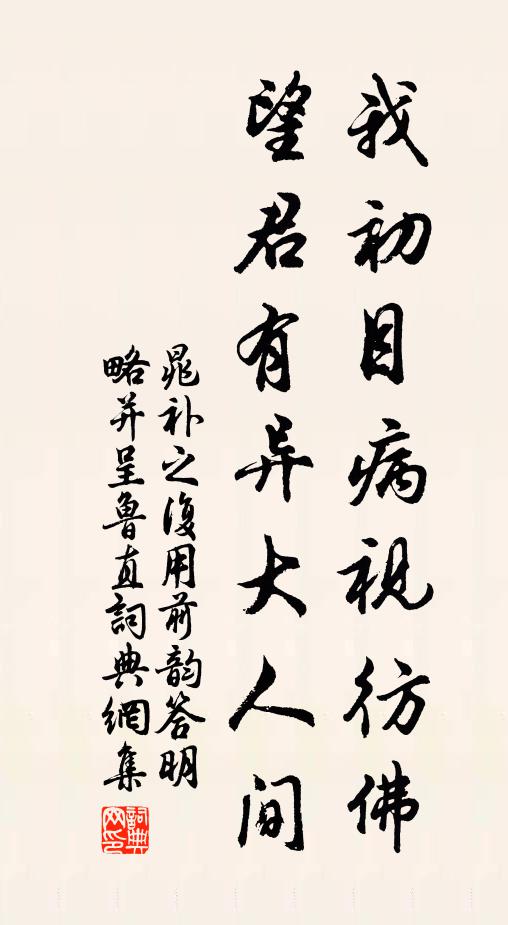 我初目病视彷佛
望君有异大人间
晁补之復用前韵答明
略并呈鲁直詞典網集
詞典
网印